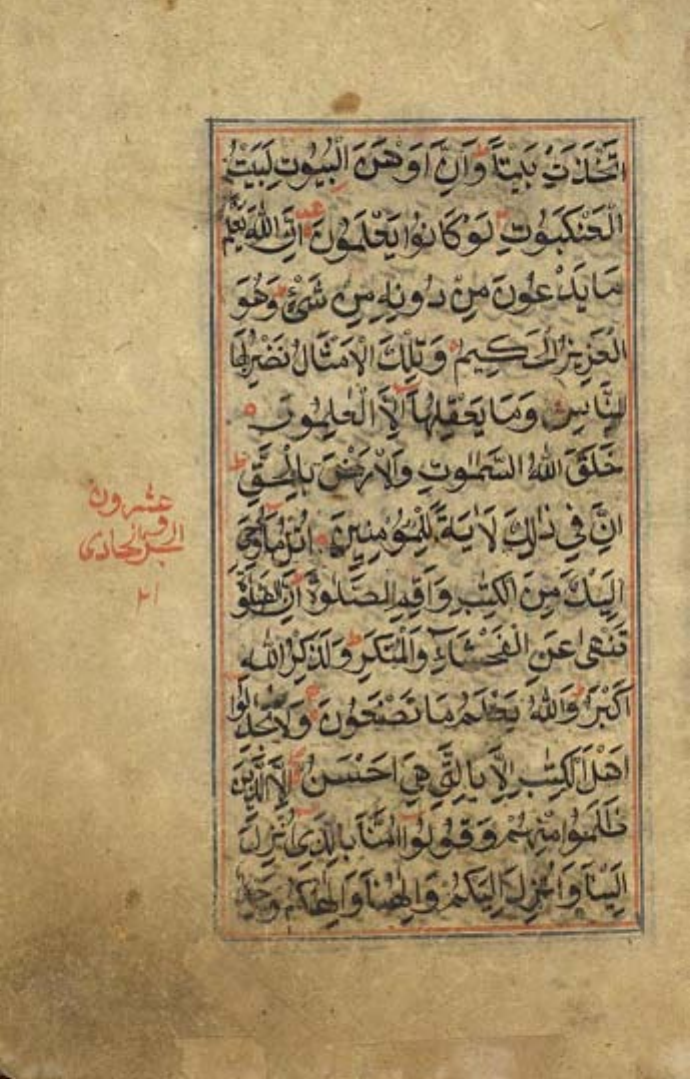 اتَّخَذَتْ بَيْتًا وَاِنَّ اَوْهَنَ الْبُيُوتِ لَبَيْتُ
الْعَنْكَبُوتِ لَوْ كَانُوا يَعْلَمُونَ اِنَّ اللّٰهَ يَعْلَمُ
مَا يَدْعُونَ مِنْ دُونِهِ مِنْ شَیْءٍ وَهُوَ
الْعَزِيزُ الْحَكِيمُ وَتِلْكَ الْاَمْثَالُ نَضْرِبُهَا
لِلنَّاسِ وَمَا يَعْقِلُهَا اِلَّا الْعٰلِمُونَ
خَلَقَ اللّٰهُ السَّمٰوٰتِ وَالْاَرْضَ بِالْحَقِّ
اِنَّ فِي ذٰلِكَ لَاٰيَةً لِلْمُؤْمِنِينَ اُتْلُ مَا اُوحِيَ
اِلَيْكَ مِنَ الْكِتٰبِ وَاَقِمِ الصَّلٰوةَ اِنَّ الصَّلٰوةَ
تَنْهٰى عَنِ الْفَحْشَاءِ وَالْمُنْكَرِ وَلَذِكْرُ اللّٰهِ
اَكْبَرُ وَاللّٰهُ يَعْلَمُ مَا تَصْنَعُونَ وَلَا تُجَادِلُوا
اَهْلَ الْكِتٰبِ اِلَّا بِالَّتِي هِيَ اَحْسَنُ اِلَّا الَّذِينَ
ظَلَمُوا مِنْهُمْ وَقُولُوا اٰمَنَّا بِالَّذِي اُنْزِلَ
اِلَيْنَا وَاُنْزِلَ اِلَيْكُمْ وَاِلٰهُنَا وَاِلٰهُكُمْ وَاحِدٌ
عشرون
الجزو الحادى
٢١